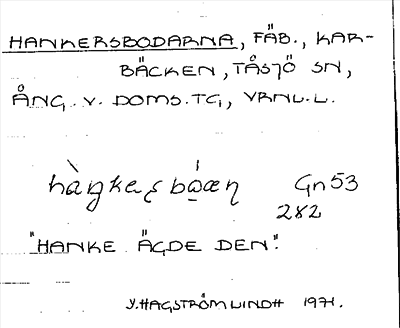 HANKERSBODARNA, FÄB., KAR-
BÄCKEN, TÅSJÖ SN,
ÅNG. V. DOMS. TG, VRNL.L.
Gn 53
282
"HANKE ÄGDE DEN."
Y. HAGSTRÖM LINDH 1971.